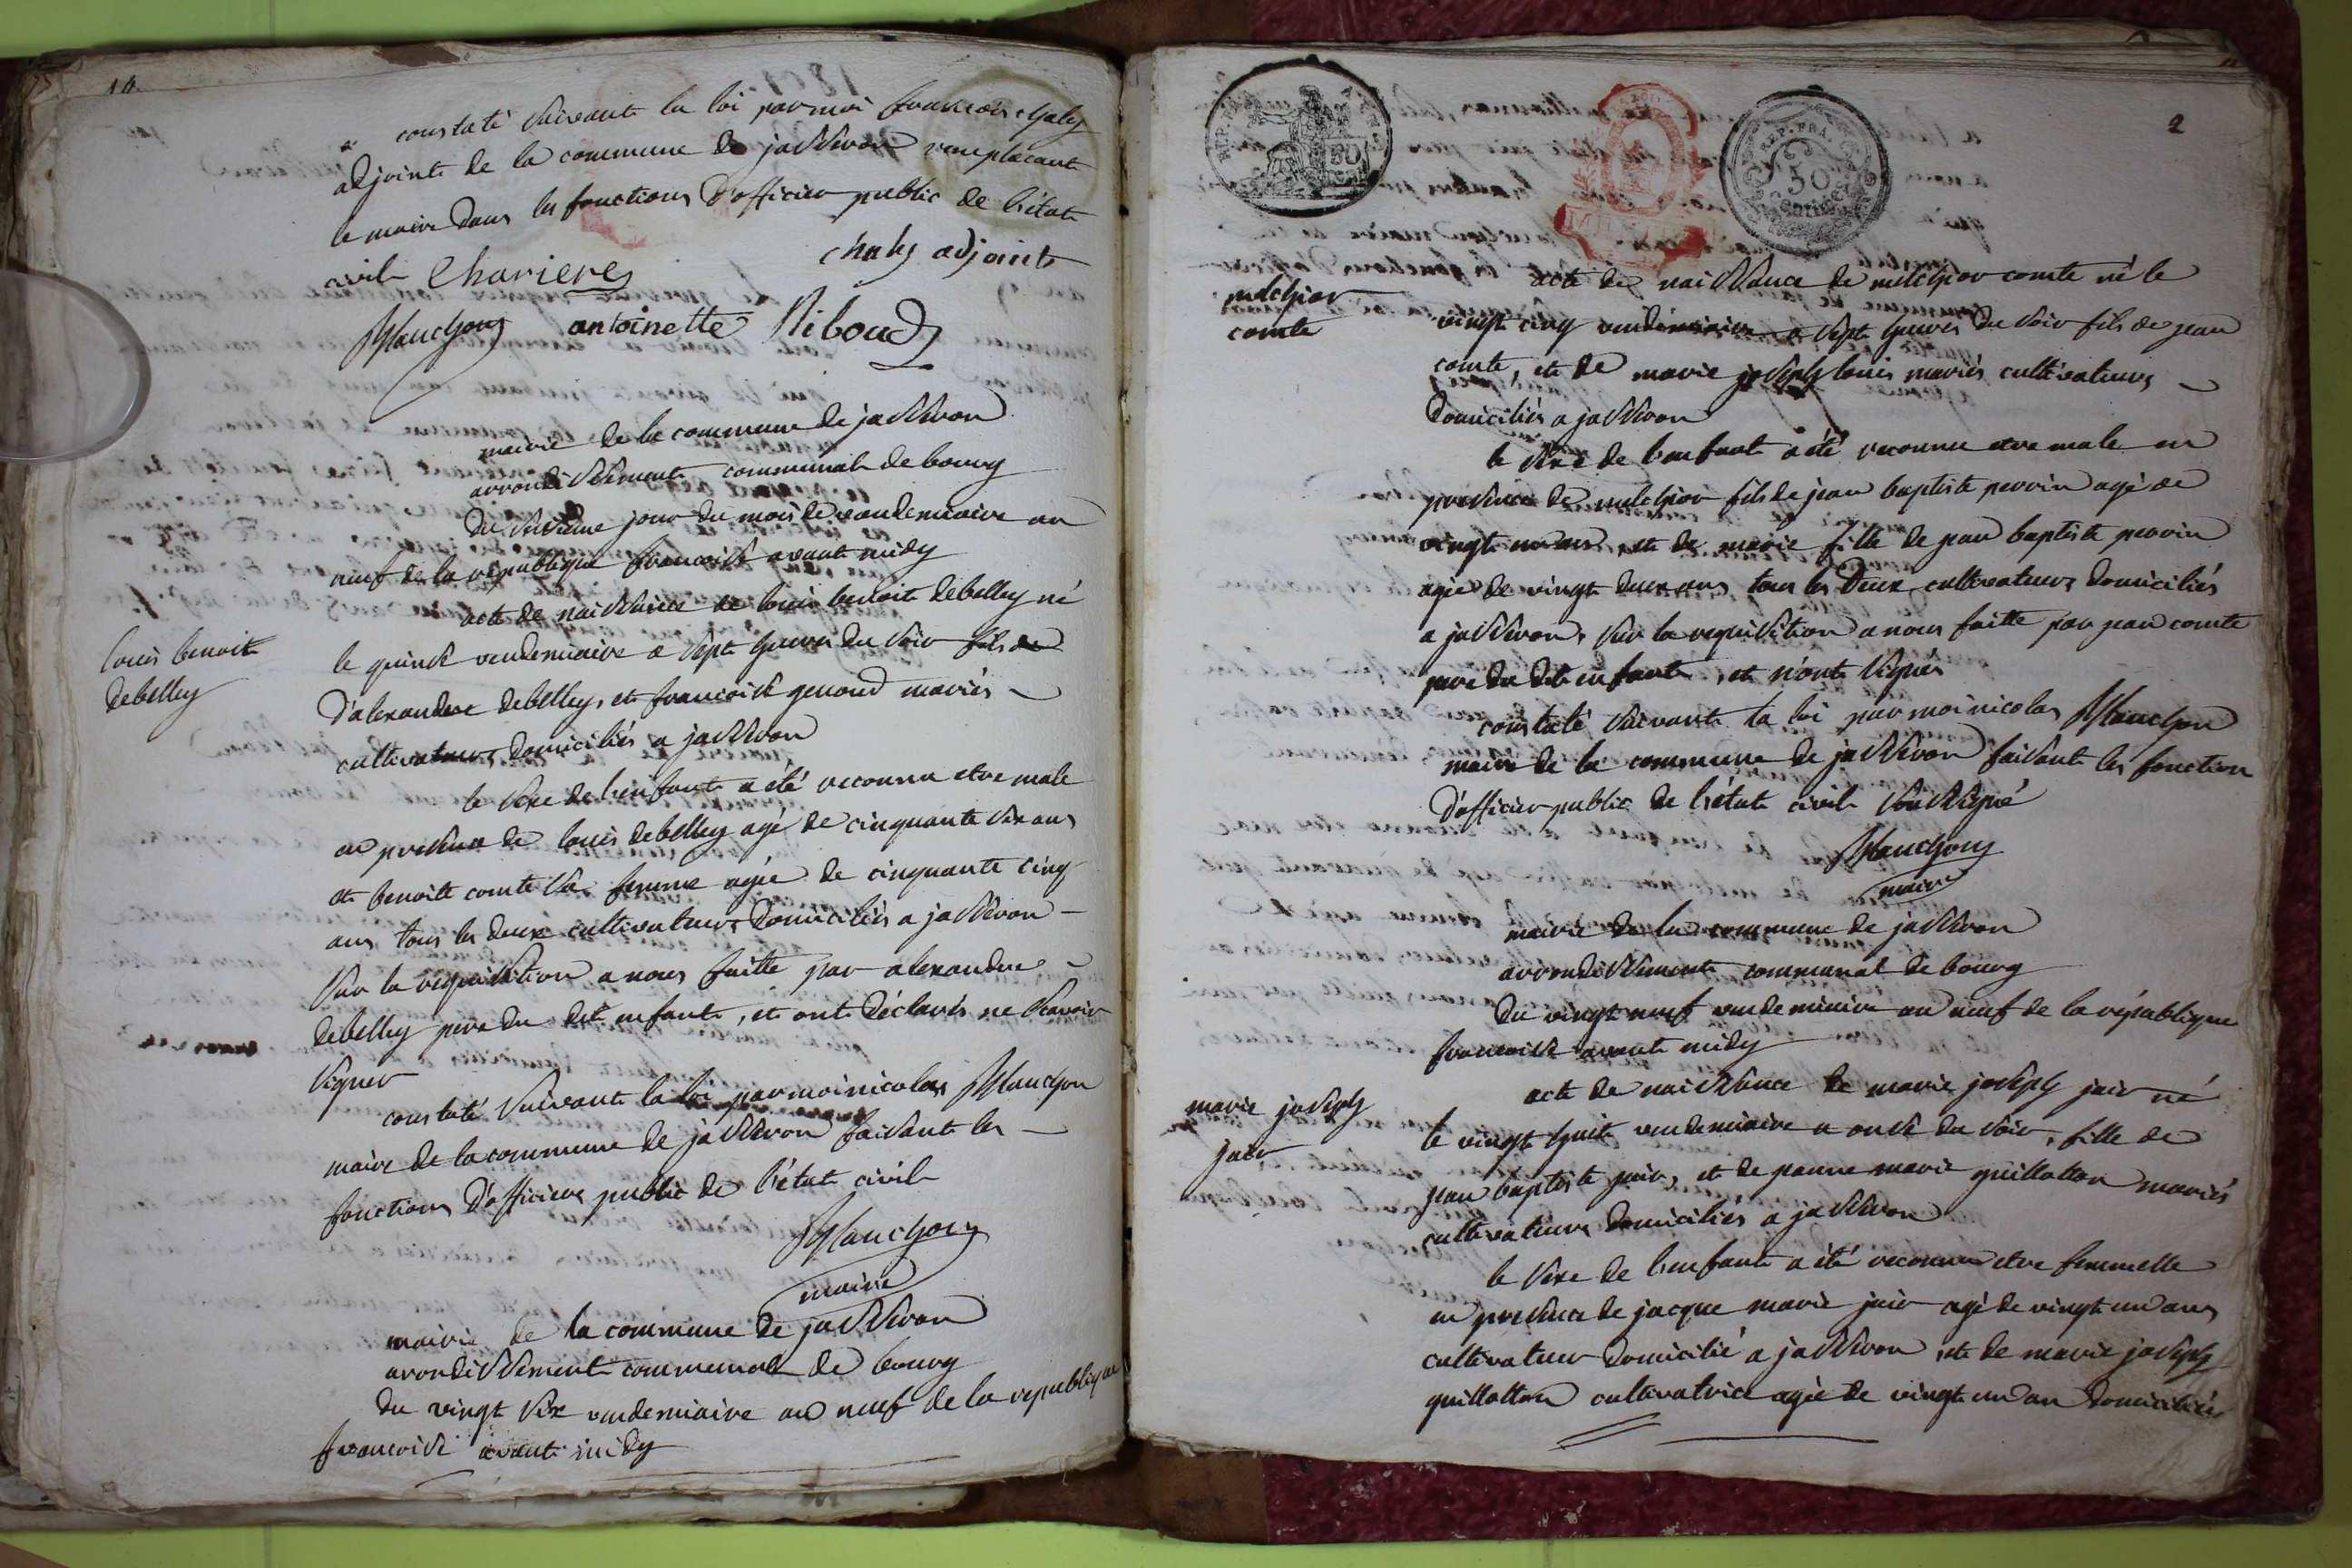 constaté suivant la loi par moi francois chaly
adjoint de la commune de jasseron remplacant
le maire dans les fonctions d'officier public de l'état
civil Charieres chaly adjoint
Planchon antoinette Riboud
mairie de la commune de jasseron
arrondissement communal de bourg
du seizieme jour du mois de vendemiaire an
neuf de la republique francoise avant midy
acte de naissance de louis benoit debelley né
louis benoit
debelley
le quinse vendemiaire a sept heures du soir fils de
d'alexandre debelley, et francoise genoud mariés
cultivateurs domiciliés a jasseron
le sexe de l'enfant a été reconnu etre male
en presence de louis debelley agé de cinquante six ans
et benoite comte sa femme agée de cinquante cinq
ans tous les deux cultivateurs domiciliés a jasseron
sur la requisition a nous faitte par alexandre
debelley pere du dit enfant, et ont déclarés ne scavoir
signer
constaté suivant la loi par moi nicolas Planchon
maire de la commune de jasseron faisant les
fonctions d'officiers public de l'état civil
Planchon
maire
mairie de la commune de jasseron
arondissement communal de bourg
du vingt six vendemiaire an neuf de la republique
francoise avant midy
2
REP. FRA.
50
centimes
acte de naissance de melchior comte né le
melchior
comte
vingt cinq vendemiaire a sept heures du soir fils de jean
comte, et de marie joseph louis mariés cultivateurs
domiciliés a jasseron
le sexe de l'enfant a été reconnu etre male en
presence de melchior fils de jean baptiste perrin agé de
vingt un ans, et de marie fille de jean baptiste perrin
agée de vingt deux ans tous les deux cultivateurs domiciliés
a jasseron, sur la requisition a nous faitte par jean comte
pere du dit enfant, et n'ont signés
constaté suivant la loi par moi nicolas Planchon
maire de la commune de jasseron faisant les fonction
d'officier public de l'état civil soussigné
Planchon
maire
mairie de la commune de jasseron
arrondissement communal de bourg
du vingt neuf vendemiaire an neuf de la république
francoise avant midy
acte de naissance de marie joseph jair né
marie joseph
jair
le vingt huit vendemiaire a onse du soir, fille de
jean baptiste jair, et de jeanne marie guillotton mariés
cultivateurs domiciliés a jasseron
le sexe de l'enfant a été reconnu etre femmelle
en presence de jacque marie jair agé de vingt un ans
cultivateur domicilié a jasseron, et de marie joseph
guillotton cultivatrice agée de vingt un an domiciliés